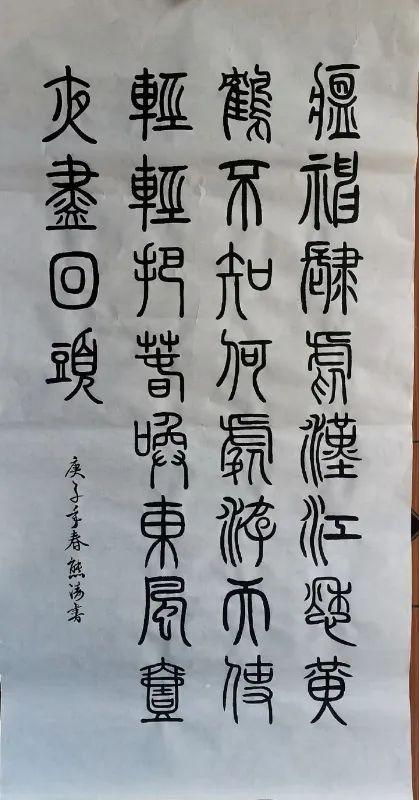 瘟神肆虐漢江愁黃
鶴不知何處游天使
輕輕把春喚東風
夜盡回頭
庚子季春熊書